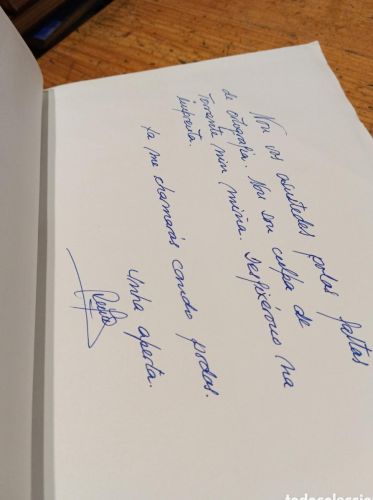 Non vos asustedes polas faltas
de ortografía. Non son culpa de
Torrente nin miña. Desfixérono na
imprenta.
Xa me chamarás cando podas.
Unha aperta.
todocoleccio